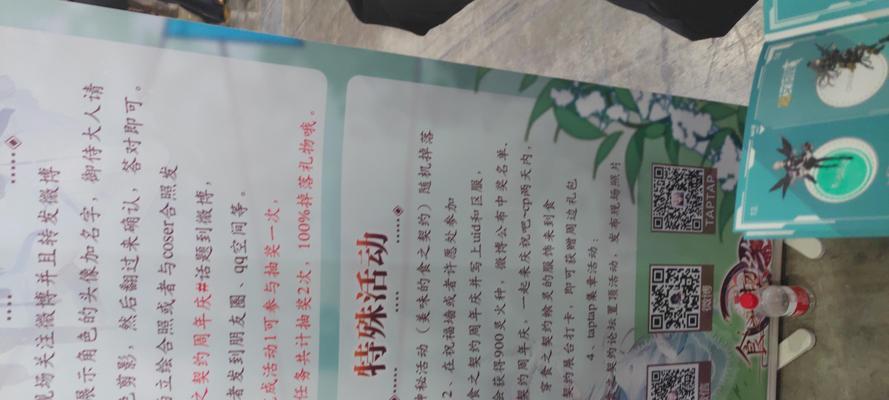 现场关注微博并且转发微博
展示角色的头像加名字，御侍大人请
色剪影，然后翻过来确认，答对即可。
与立绘合照或者与coser合照发
之契约周年庆#话题到微博，
者发到朋友圈、qq空间等。
成活动1可参与抽奖一次，
任务共计抽奖2次，100%掉落礼物哦。
特殊活动
神秘活动（美味的食之契约）随机掉落
2、在祝福墙或者许愿处参加
食之契约周年庆并写上uid和区服，
会获得900灵火种，微博公布中奖名单、
契约周年庆，一起来庆祝吧~cp两天内，
穿食之契约飨灵的服饰来到食
契约展台打卡，即可获赠周边礼包
4、taptap集章活动：
之契约论坛置顶活动，发布现场照片
TAPTAP
微博
食